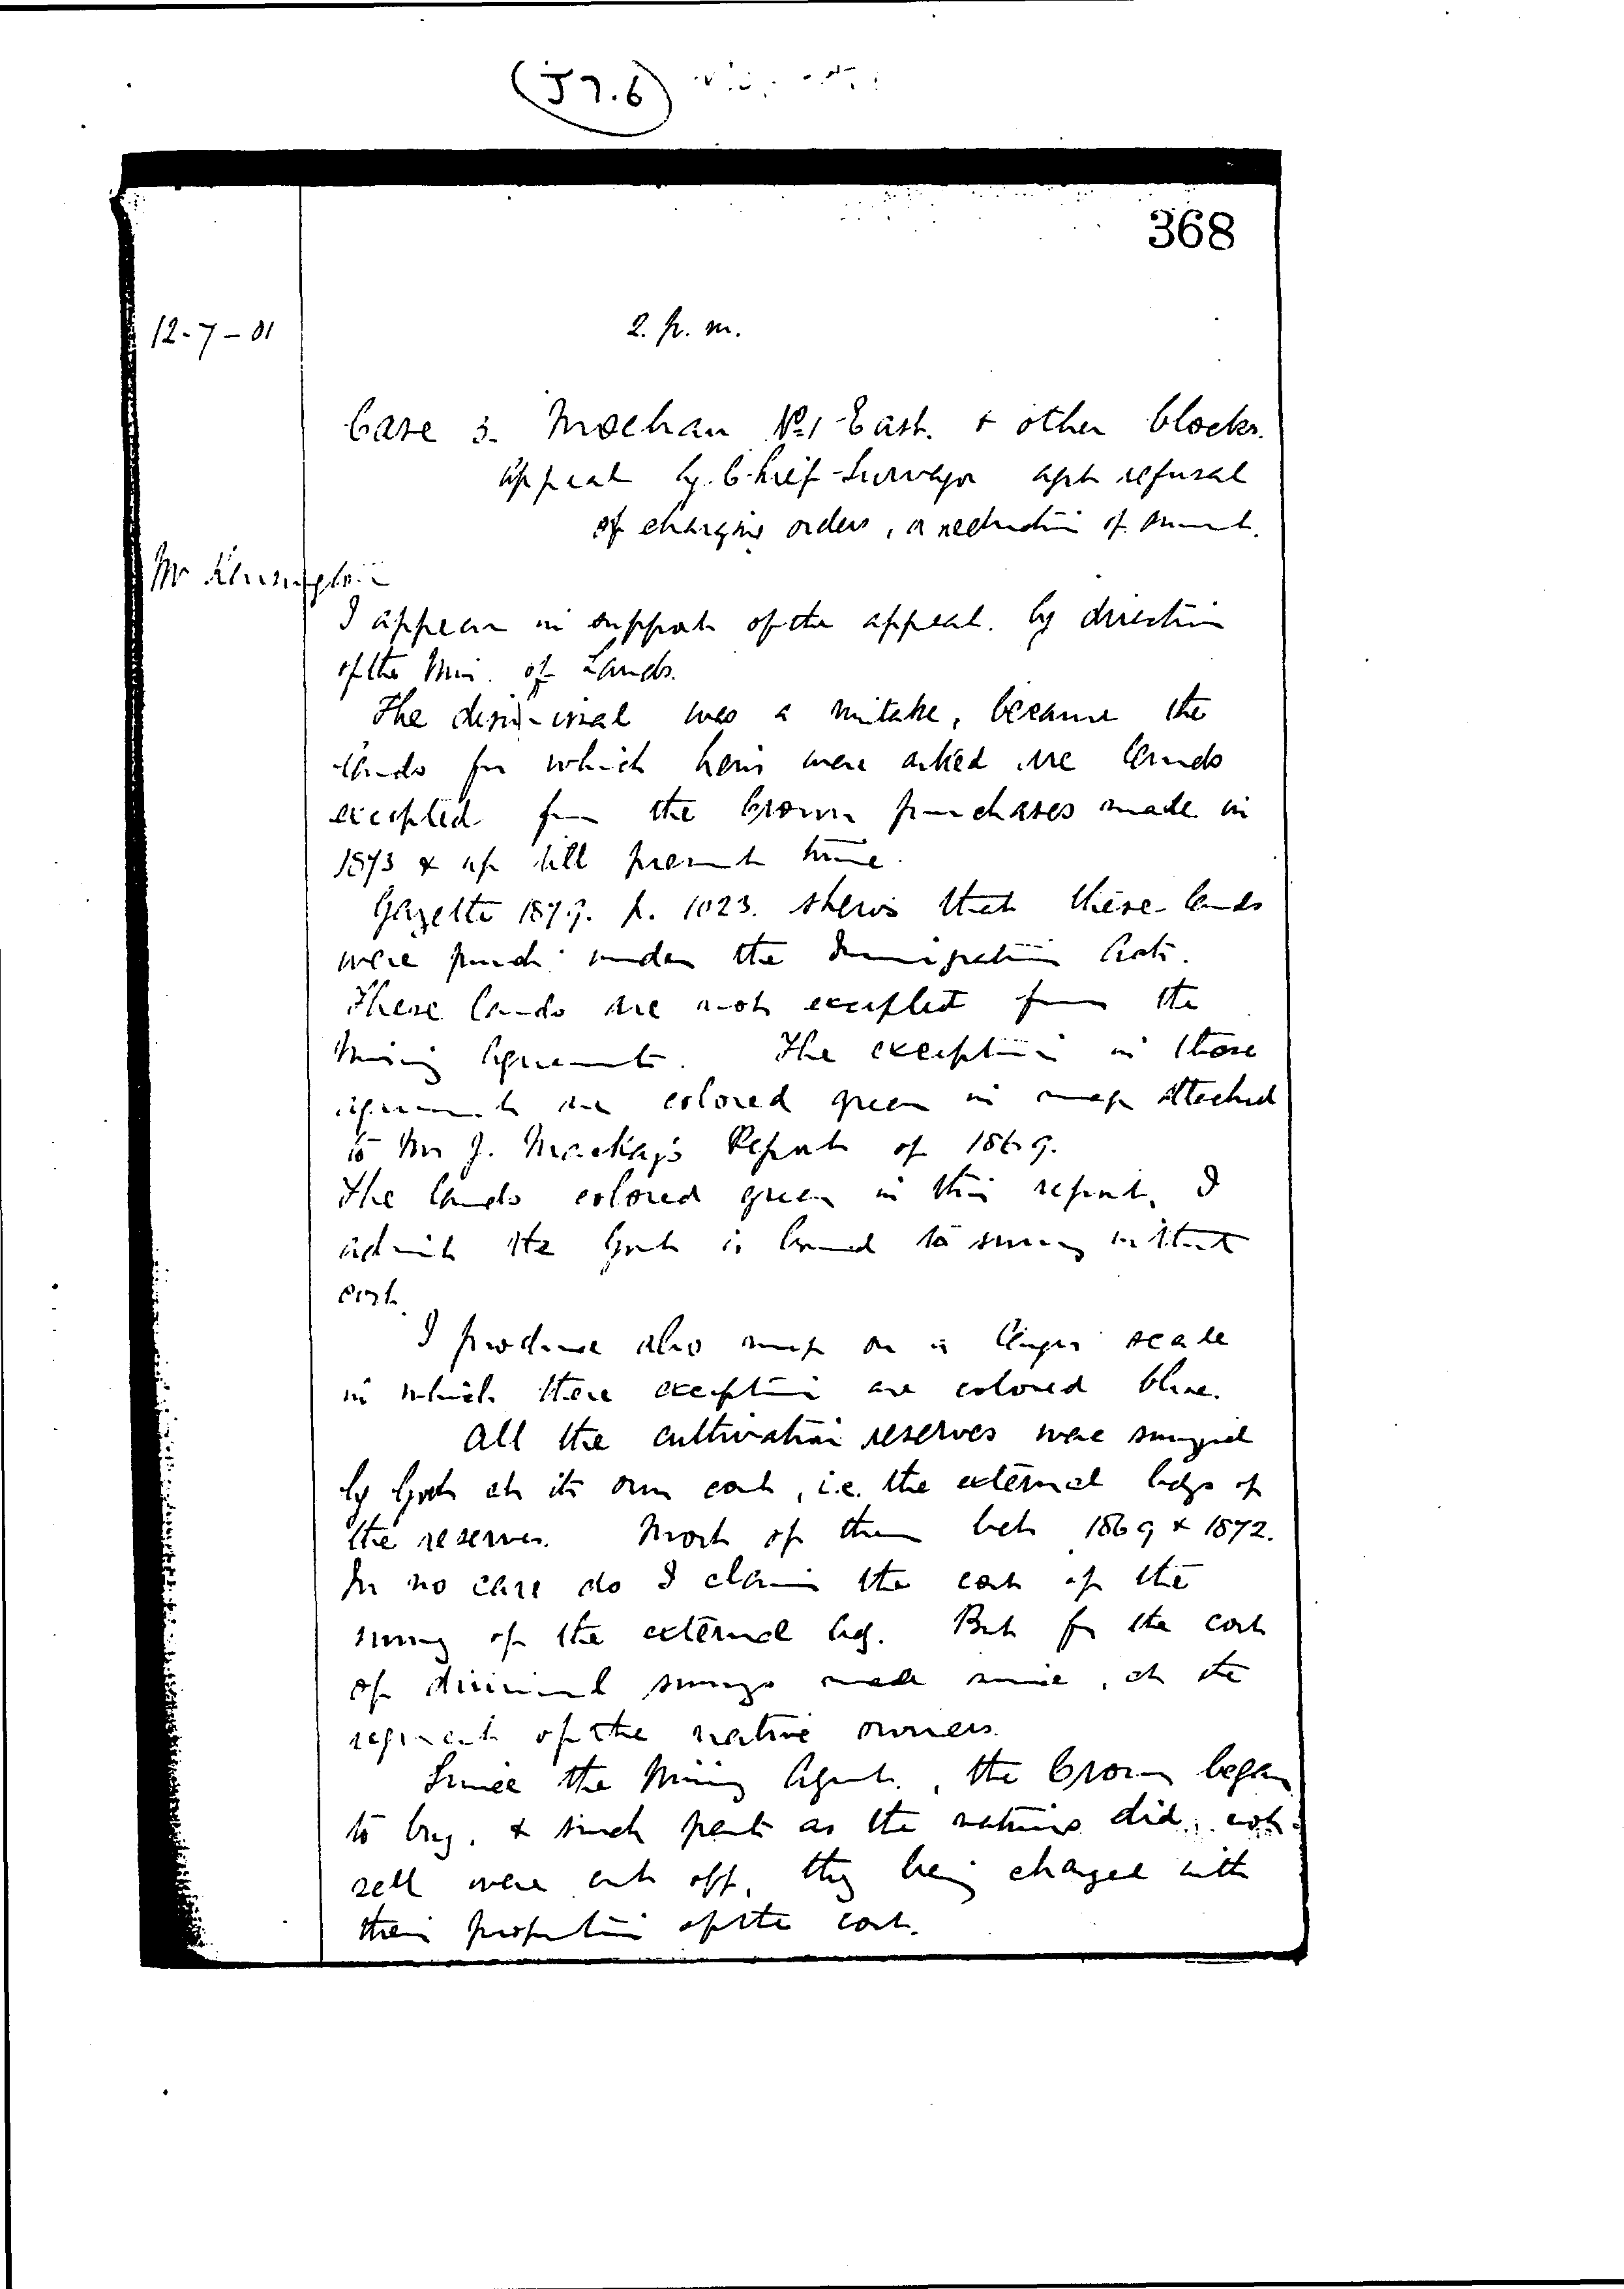 (J7.6)
368
12-7-01
2. p. m.
Case 3. Moehau No. 1 East. & other blocks.
Appeal by Chief Surveyor agst refusal
of charging orders, or reduction of amount.
Mr Kensington
I appear in support of the appeal. by direction
of the Min. of Lands.
The dismissal was a mistake, because the
lands for which liens were asked are lands
excepted from the Crown purchases made in
1873 & up till present time.
Gazette 1879. p. 1023. shews that these lands
were purch. under the Immigration Acts.
These lands are not excepted from the
Mining Agreements. The exceptions in those
agreements are colored green in map attached
to Mr J. Mackay's Report of 1869.
The lands colored green in this report, I
admit the Govt is bound to survey without
cost.
I produce also map on a larger scale
in which these exceptions are colored blue.
All the cultivation reserves were surveyed
by Govt at its own cost, i.e. the external bdys of
the reserves. Most of them bet. 1869 & 1872.
In no case do I claim the cost of the
survey of the external bdy. But for the cost
of divisional surveys made since, at the
request of the native owners.
Since the Mining Agmts., the Crown began
to buy, & such parts as the natives did not
sell were cut off, they being charged with
their proportion of the cost.